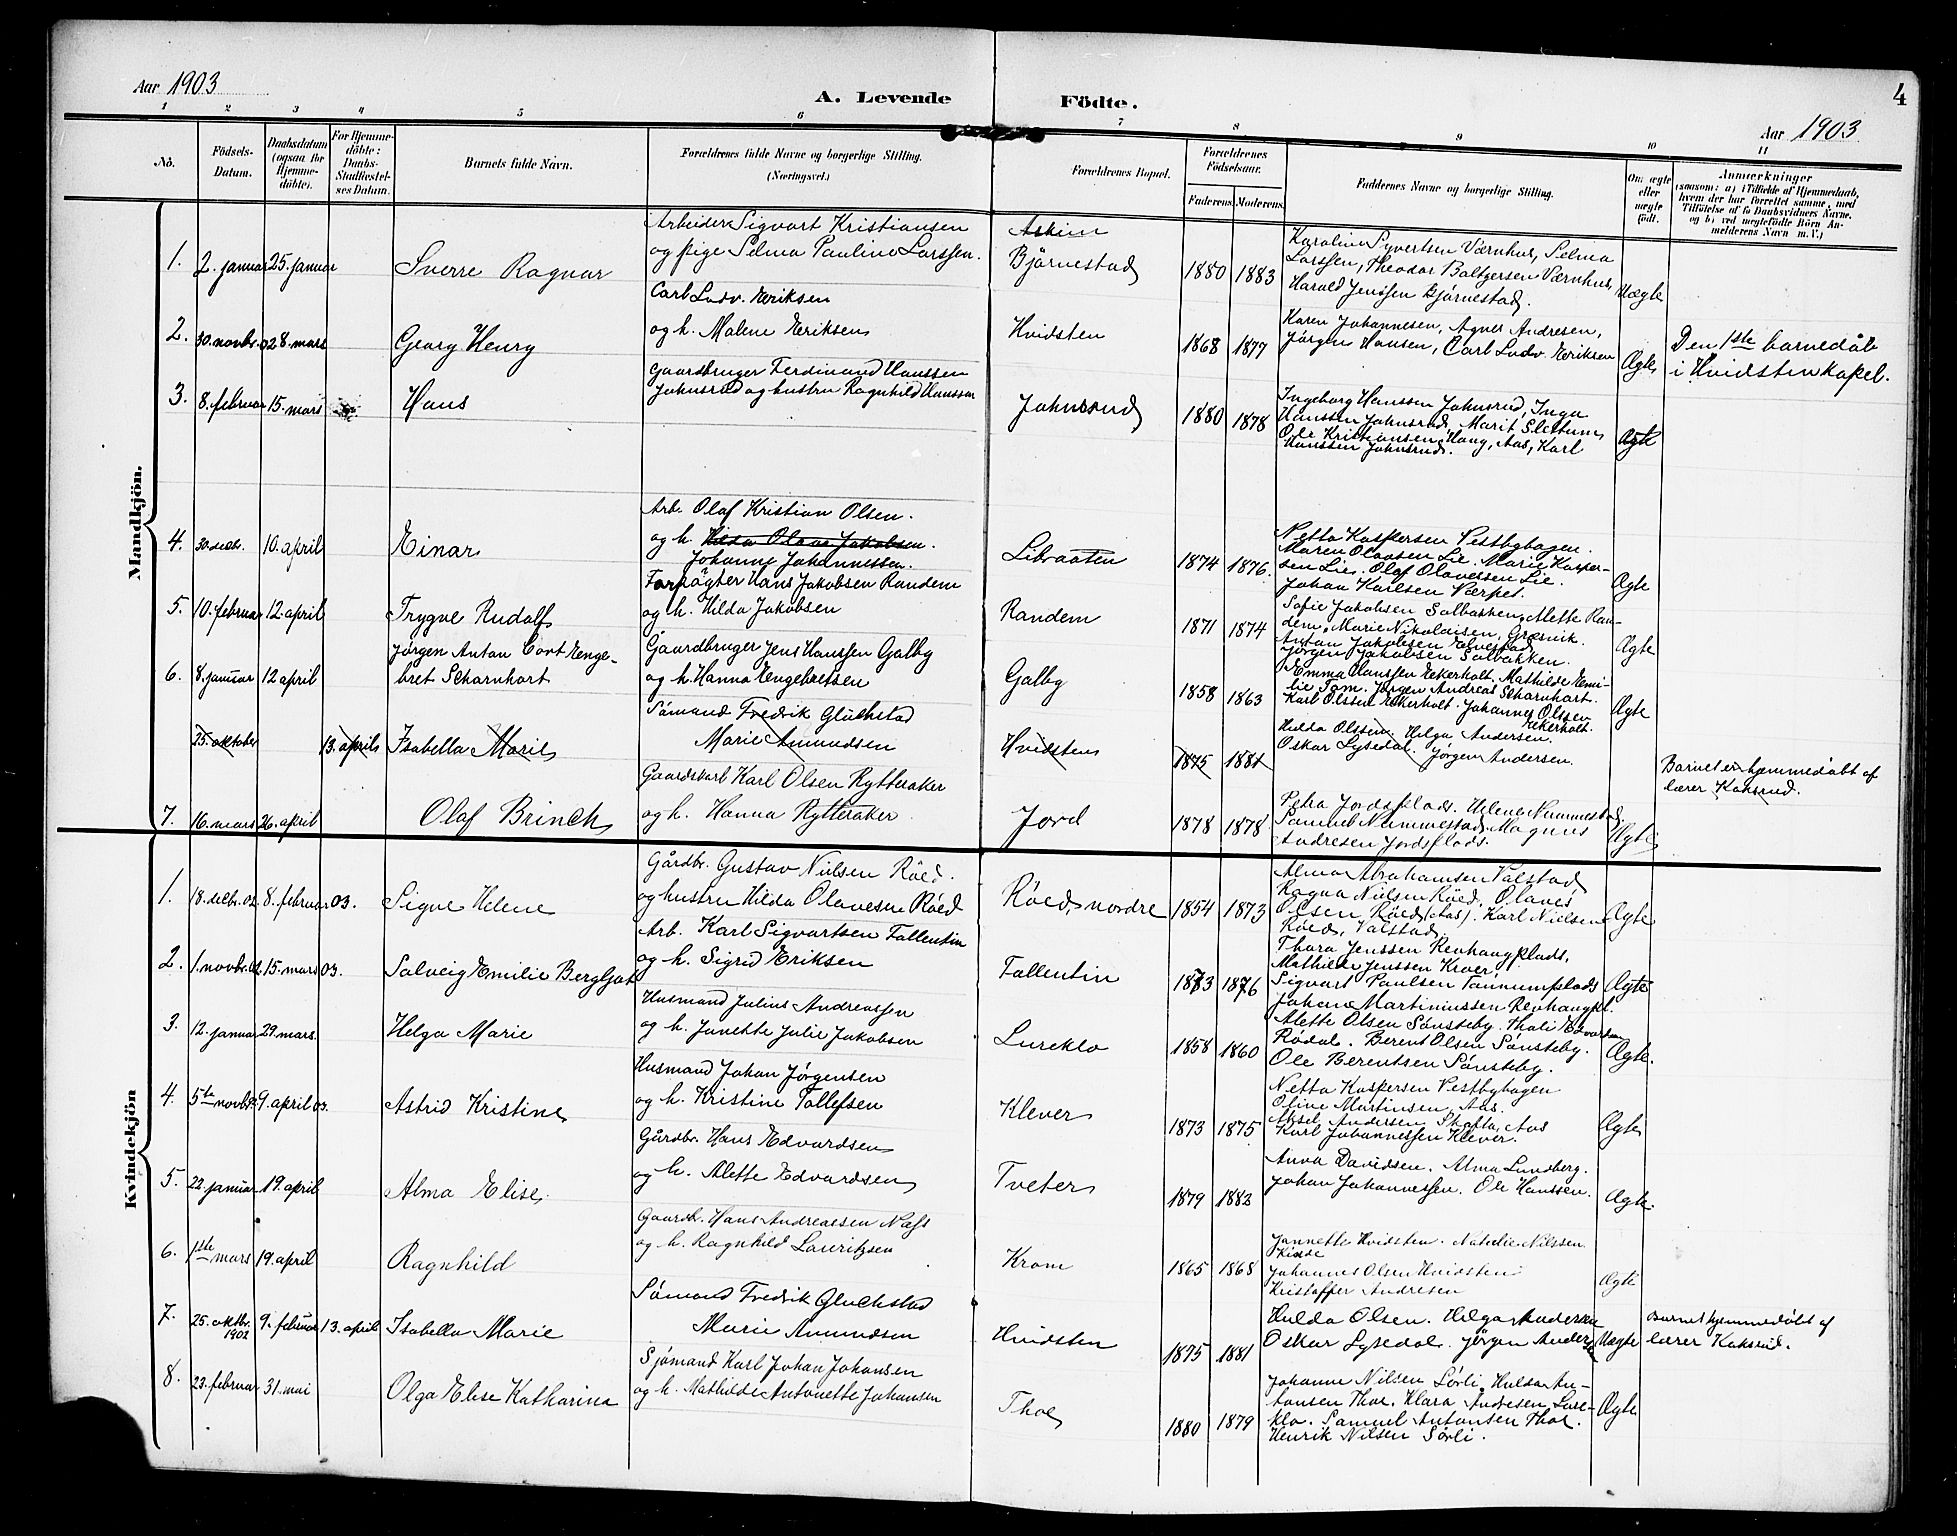 Aar 1903
A. Levende Födte.
4
Aar 1903
1 2 3 4 5 6 7 8 9 10 11
No.
Födsels-
Datum.
Daabsdatum
(ogsaa for
Hjemme-
döbte).
For Hjemme-
döbte:
Daabs-
Stadfæstel-
ses Datum.
Barnets fulde Navn.
Forældrenes fulde Navne og borgerlige Stilling.
(Næringsvei.)
Forældrenes Bopæl.
Forældrenes
Födselsaar.
Faderens. Moderens.
Faddernes Navne og borgerlige Stilling.
Om ægte
eller
uægte
födt.
Anmærkninger
(saasom: a) i Tilfælde af Hjemmedaab,
hvem der har forrettet samme, med
Tilföielse af to Daabsvidners Navne,
og b) ved uægtefödte Börn An-
melderens Navn m. V.)
Mandkjön.
1. 2. januar 25. januar Sverre Ragnar
Arbeider Sigvart Kristiansen
og pige Selma Pauline Larssen.
Askim
Bjørnestad
1880 1883
Karoline Syvertsen Værnhus, Selma
Larssen, Theodor Baltzersen Værnhus,
Harald Jenssen Bjørnestad.
Uægte
2. 30. novbr. 02 8. mars Georg Henry
Carl Ludv. Eriksen
og h. Malene Eriksen
Hvidsten
1868 1877
Karen Johannesen, Agnes Andresen,
Jørgen Hansen, Carl Ludv. Eriksen
Ægte
Den 1ste barnedåb
i Hvidsten kapel.
3. 8. februar 15. mars Hans
Gaardbruger Ferdinand Hanssen
Johnsrud og hustru Ragnhild Hanssen
Johnsrud
1880 1878
Ingeborg Hanssen Johnsrud, Inga
Hanssen Johnsrud, Marit Slettum,
Ole Kristiansen Haug, Aas, Karl
Hanssen Johnsrud.
Ægte
4. 30. decbr. 10. april Einar
Arb. Olaf Kristian Olsen.
og h. Hilda Olava Jakobsen.
Johanne Johannessen.
Libraaten
1874 1876.
Netta Kaspersen Vestbyhagen.
Maren Olavsen Lie. Marie Kasper-
sen Lie. Olaf Olavessen Lie.
Johan Karlsen Værpet.
Ægte
5. 10. februar 12. april Trygve Rudolf
Forpagter Hans Jakobsen Randem
og h. Hilda Jakobsen
Randem
1871 1874
Sofie Jakobsen Solbakken, Alette Ran-
dem, Marie Nikolaisen, Græsvik.
Anton Jakobsen Elvestad
Jørgen Jakobsen Solbakken.
Ægte
6. 8. januar 12 april
Jørgen Anton Cort Enge-
bret Scharnhort
Gaardbruger Jens Hanssen Galby
og h. Hanna Engebretsen
Galby
1858 1863
Emma Hanssen Ekerholt. Mathilde Emi-
lie Søm. Jørgen Andreas Scharnhort.
Karl Olssen Ekerholt. Johannes Olssen
Ekerholt.
Ægte
25. oktober 13. april Isabella Marie
Sømand Fredrik Glückstad
Marie Amundsen
Hvidsten
1875 1881
Hilda Olssen. Helga Andersen.
Oskar Lysedal. Jørgen Andersen.
Barnet er hjemmedøbt af
lærer Koksrud.
7. 16. mars 26. april Olaf Brinch
Gaardskarl Karl Olsen Rytteraker
og h. Hanna Rytteraker.
Jord
1878 1878
Petra Jordsplads. Helene Nummestad.
Samuel Nummestad. Magnus
Andresen Jordsplads.
Ægte
Kvindekjön
1. 18. decbr. 02. 8. februar 03. Signe Helene
Gårdbr. Gustav Nielsen Röed.
og hustru Hilda Olavesen Röed
Röed, nordre
1854 1873
Alma Abrahamsen Valstad
Ragna Nielsen Röed, Olaves
Olsen, Röed, (Aas). Karl Nielsen
Röed, Valstad.
Ægte
2. 1. novbr. 02. 15. mars 03. Solveig Emilie Bergljot
Arb. Karl Sigvartsen Follentin
og h. Sigrid Eriksen
Follentin
1873 1876
Thora Jenssen Revhaugplads,
Mathilde Jenssen Kroer,
Sigvart Paulsen Taunumplads
Johan Martiniussen Revhaugpl.
Ægte
3. 12. januar 29. mars. Helga Marie
Husmand Julius Andreassen
og h. Janette Julie Jakobsen
Lureklo
1858 1860
Alette Olsen Sønsteby. Thali Edvardsen
Rødal. Berent Olsen Sønsteby.
Ole Berentsen Sønsteby.
Ægte.
4. 5te novbr. 9. april 03. Astrid Kristine
Husmand Johan Jørgensen
og h. Kristine Tollefsen
Klever
1873 1875
Netta Kaspersen Vestbyhagen
Oline Martinsen, Aas.
Aksel Andersen Skofta, Aas
Karl Johannessen Klever.
Ægte
5. 22. januar 19. april Alma Elise.
Gårdbr. Hans Edvardsen
og h. Alette Edvardsen
Tveter
1879 1883
Anna Davidsen. Alma Lundberg.
Johan Johannessen. Ole Hanssen.
Ægte.
6. 1ste mars 19. april Ragnhild
Gaardbr. Hans Andreassen Næss
og h. Ragnhild Lauritzsen
Krom
1865 1868
Jannette Hvidsten. Natalie Nilssen
Kinde
Johannes Olsen Hvidsten
Kristoffer Andresen
Ægte
7. 25. oktbr. 1902 9. februar 13. april Isabella Marie
Sømand Fredrik Gluckstad
Marie Amundsen
Hvidsten
1875 1881
Hulda Olsen. Helga Andersen
Oskar Lysedal. Jørgen Andersen
Uægte
Barnet hjemmedøbt af
lærer Koksrud.
8. 23. februar 31. mai Olga Elise Katharina
Sjømand Karl Johan Johansen
og h. Mathilde Antonette Johansen
Thoe
1880 1879
Johanne Nilsen Sørli. Hulda An-
tonsen Thoe. Klara Andresen Lure-
klo. Samuel Antonsen Thoe.
Henrik Nilsen Sørli.
Ægte